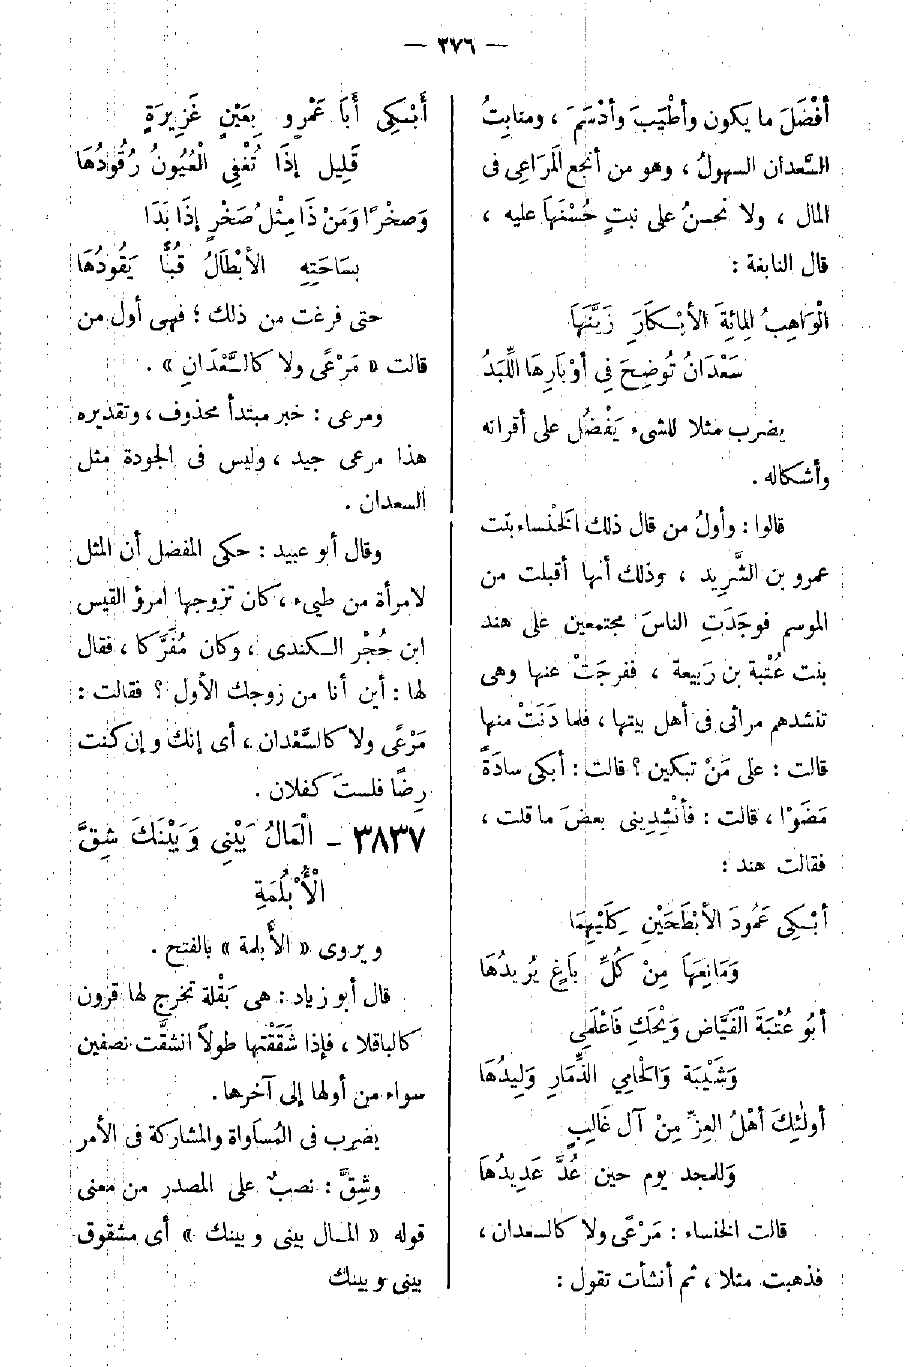 — ٣٧٦ —
أفْضَلَ ما يكون وأطْيَبَ وأدْسَمَ ، ومنابِتُ
السَّعدان السهولُ ، وهو من أنجع المَرَاعِى فى
المال ، ولا تحسنُ على نبتٍ حُسْنَهَا عليه ،
قال النابغة :
الْوَاهِبُ المِائِةَ الأبْكَارَ زَيَّنَهَا
سَعْدَانُ تُوضِحَ فِى أوْبَارِهَا اللِّبَدُ
يضرب مثلا للشىء يَفْضُل على أقرانه
وأشكاله .
قالوا : وأولُ من قال ذلك الخنْساء بنت
عمرو بن الشَّرِيد ، وذلك أنها أقبلت من
الموسم فوجَدَتِ الناسَ مجتمعين على هند
بنت عُتْبة بن رَبيعة ، ففرجَتْ عنها وهى
تنشدهم مراثى فى أهل بيتها ، فلما دَنَتْ منها
قالت : على مَنْ تبكين ؟ قالت : أبكى سادَةً
مَضَوْا ، قالت : فأنْشِدِينى بعضَ ما قلت ،
فقالت هند :
أبْكِى عَمُودَ الأبْطَحَيْنِ كِلَيْهِمَا
وَمَانِعَهَا مِنْ كُلِّ بَاغٍ يُرِيدُهَا
أبُو عُتْبَةَ الْفَيَّاض وَيْحَكِ فَاعْلَمِى
وَشَيْبَة وَالحَامِي الذِّمَارِ وَلِيدُهَا
أولٰئِكَ أهْلُ العِزِّ مِنْ آلِ غَالِبٍ
وَللمجد يوم حين عُدَّ عَدِيدُهَا
قالت الخنساء : مَرْعًى ولا كالسعدان ،
فذهبت مثلا ، ثم أنشأت تقول :
أَبْكِى أَبَا عَمْرٍو بِعَيْنٍ غَزِيرَةٍ
قَلِيل إذَا تُغْفِى الْعُيُونُ رُقُودُهَا
وَصَخْرًا وَمَنْ ذَا مِثْلُ صَخْرٍ إذَا بَدَا
بسَاحَتِهِ الأبْطَالُ قُبًّا يَقُودُهَا
حتى فرغت من ذلك ؛ فهى أول من
قالت « مَرْعًى ولا كالسَّعْدَانِ » .
ومرعى : خبر مبتدأ محذوف ، وتقديره
هذا مرعى جيد ، وليس فى الجودة مثل
السعدان .
وقال أبو عبيد : حكى المفضل أن المثل
لامرأة من طيىء ، كان تزوجها امرؤ القيس
ابن حُجْر الكندى ، وكان مُفَرَّكا ، فقال
لها : أين أنا من زوجك الأول ؟ فقالت :
مَرْعًى ولا كالسَّعْدان ، أى إنك وإن كنت
رِضًا فلستَ كفلان .
٣٨٣٧ – الْمَالُ بَيْنِى وَبَيْنَكَ شِقَّ
الْأُبْلُمَةِ
ويروى « الأَبلمة » بالفتح .
قال أبو زياد : هى بَقْلة تخرج لها قرون
كالباقلا ، فإذا شَقَقْتها طولاً انشقَّت نصفين
سواء من أولها إلى آخرها .
يضرب فى المُساَواة والمشاركة فى الأمر
وشِقَّ : نصبٌ على المصدر من معنى
قوله « المال بينى وبينك » أى مشقوق
بينى وبينك